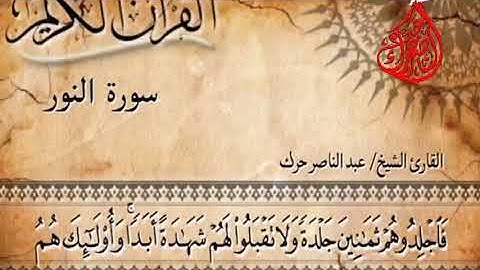 القرآن الكريم
سورة النور
القارئ الشيخ/ عبد الناصر حرك
فَٱجْلِدُوهُمْ ثَمَـٰنِينَ جَلْدَةً وَلَا تَقْبَلُوا۟ لَهُمْ شَهَـٰدَةً أَبَدًا ۚ وَأُو۟لَـٰٓئِكَ هُمُ